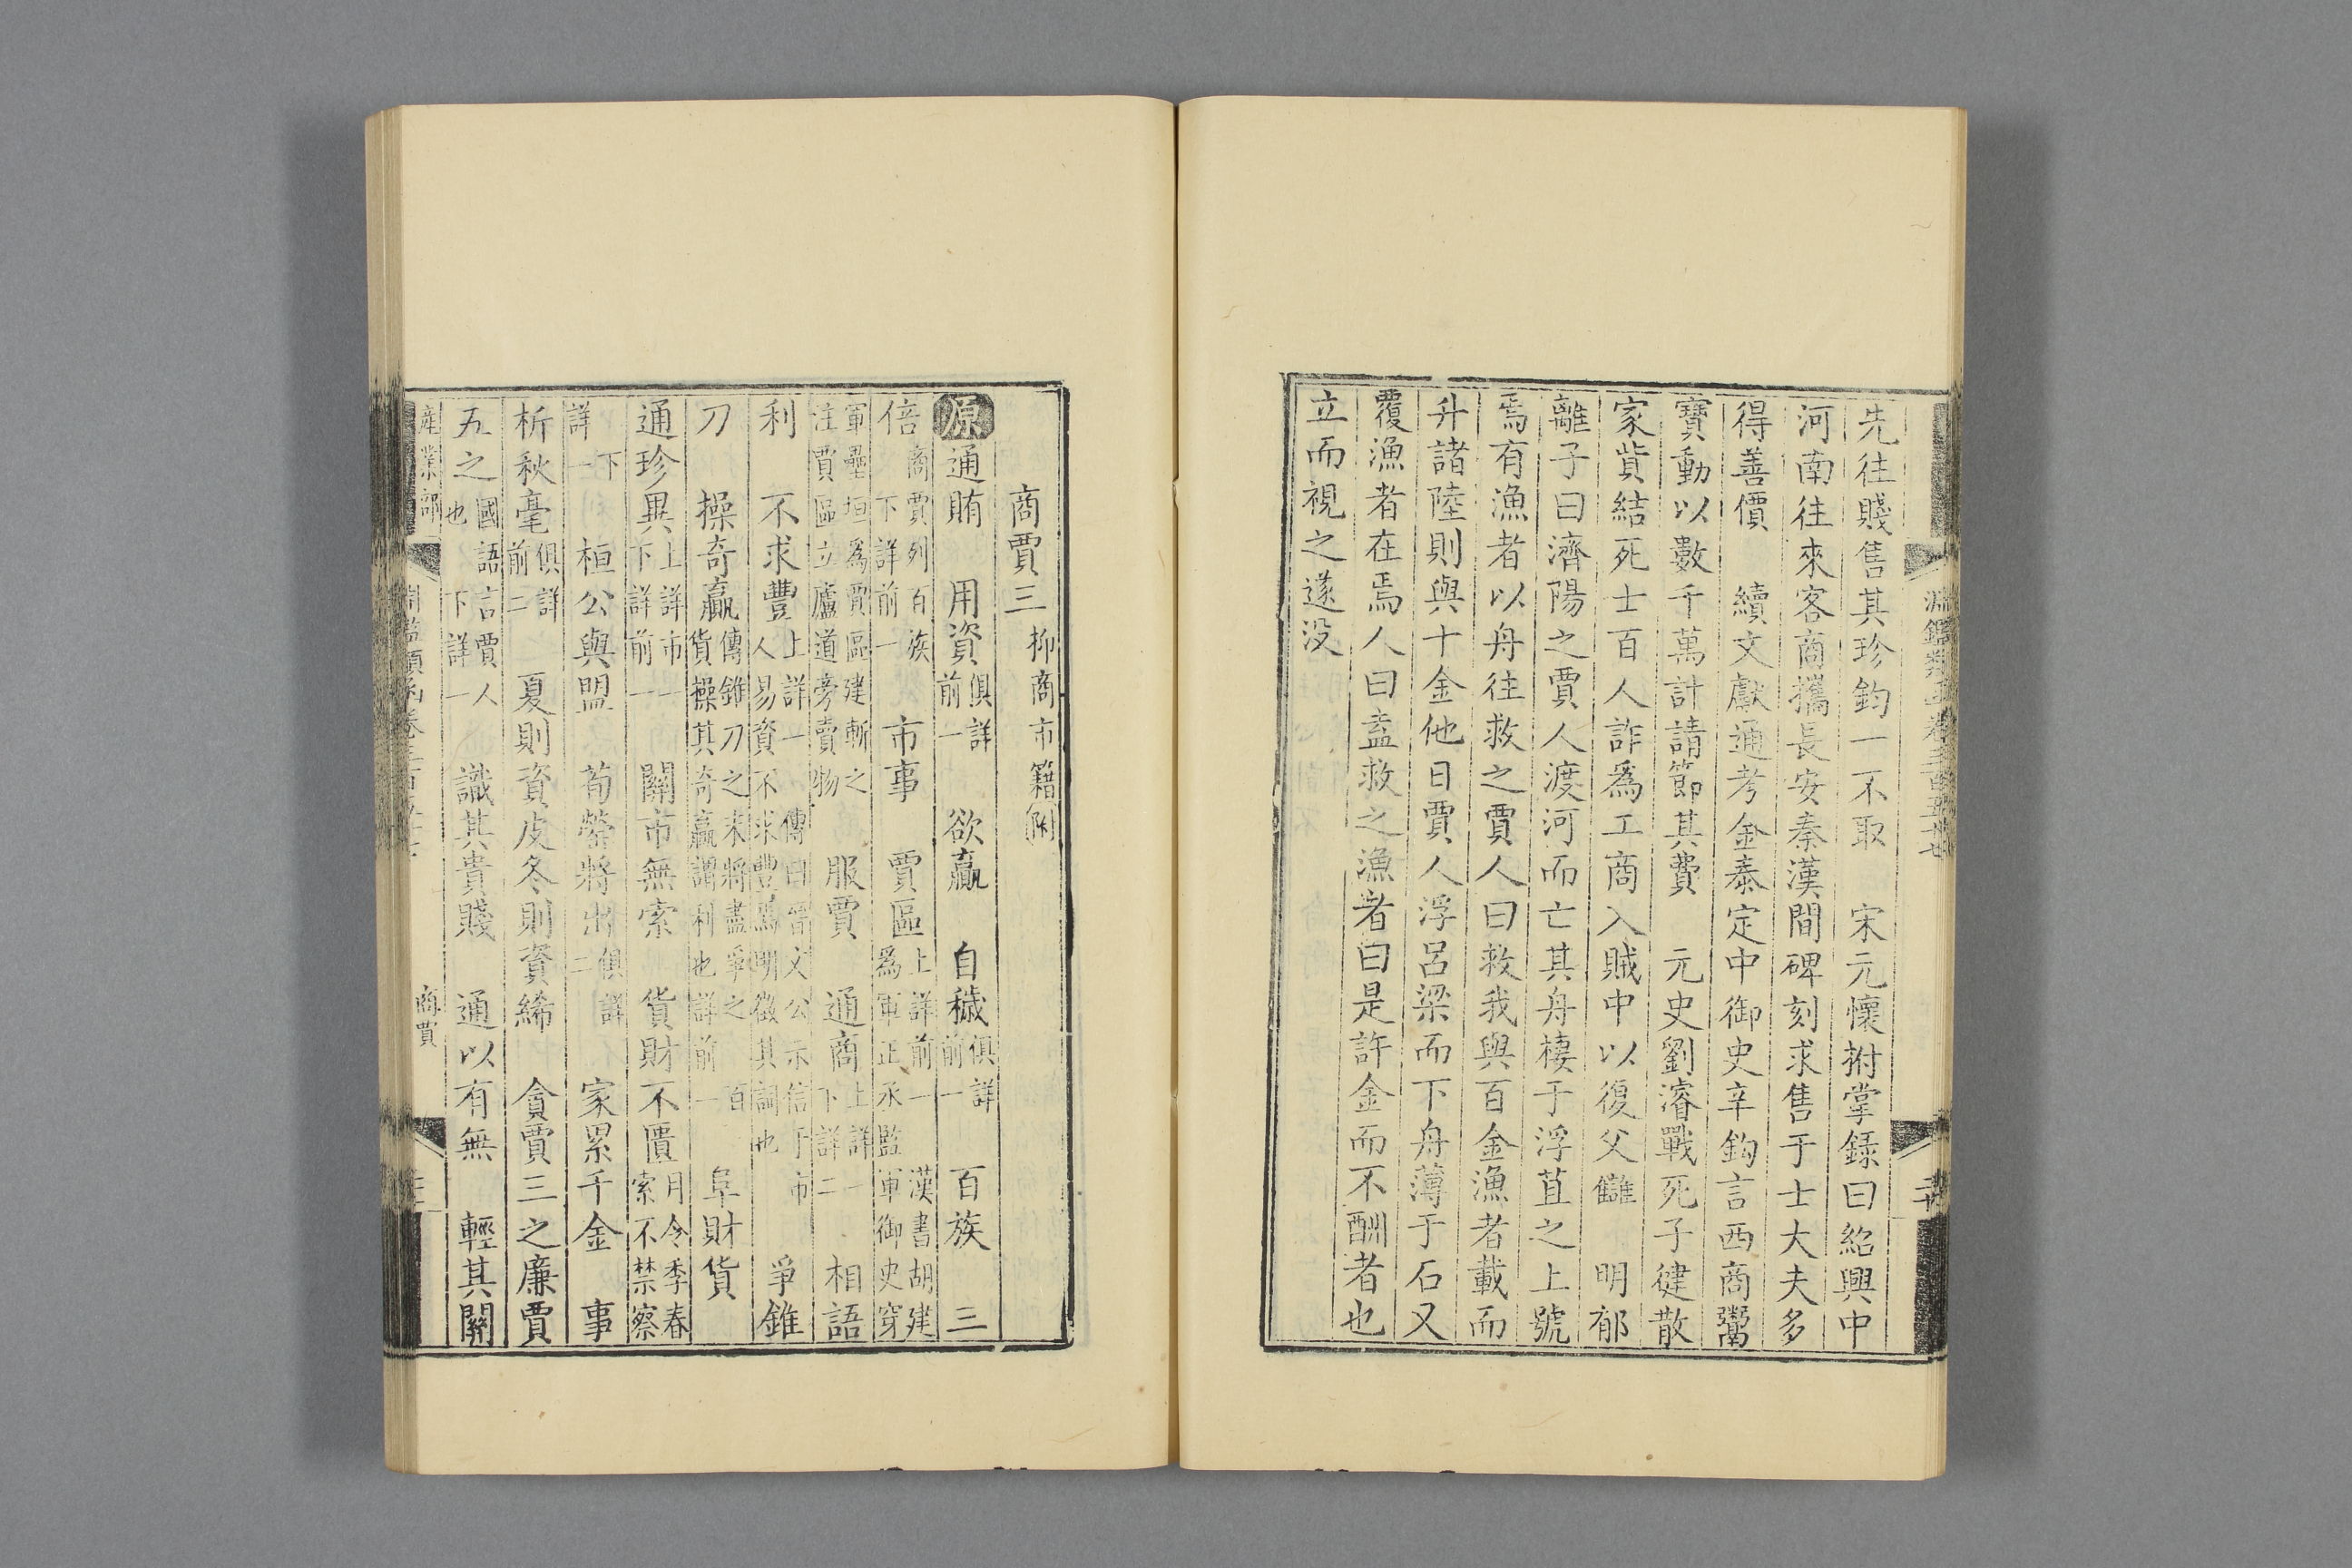 先往賤售其珍鈞一不取　宋元懷拊掌錄曰紹興中
河南往來客商攜長安秦漢間碑刻求售于士大夫多
得善價　續文獻通考金泰定中御史辛鈞言西商鬻
寶動以數千萬計請節其費　元史劉濬戰死子健散
家貲結死士百人詐爲工商入賊中以復父讎　明郁
離子曰濟陽之賈人渡河而亡其舟棲于浮苴之上號
焉有漁者以舟往救之賈人曰救我與百金漁者載而
升諸陸則與十金他日賈人浮呂梁而下舟薄于石又
覆漁者在焉人曰盍救之漁者曰是許金而不酬者也
立而視之遂没
商賈三抑商市籍附
原通賄　用資俱詳前一　欲贏　自穢俱詳前一　百族　三
倍商賈列百族下詳前一　市事　賈區上詳前一漢書胡建爲軍正丞監軍御史穿
軍壘垣爲賈區建斬之注賈區立廬道旁賣物　服賈　通商上詳一下詳二　相語
利　不求豐上詳一傳曰晉文公示信于市人易資不求豐焉明徵其詞也　爭錐
刀　操奇贏傳錐刀之末將盡爭之百貨操其奇贏謂利也詳前一　阜財貨
通珍異上詳市一下詳前一　關市無索　貨財不匱月令季春索不禁察
下詳一　桓公與盟　荀罃將出俱詳二　家累千金　事
析秋毫俱詳前二　夏則資皮冬則資絺　貪賈三之廉賈
五之國語言賈人也下詳一　識其貴賤　通以有無　輕其關
產業部
淵鑑類函卷三百五十七
商賈